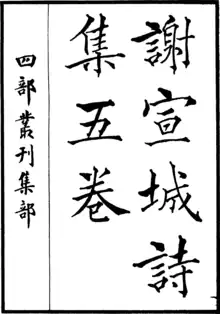 謝宣城詩
集五卷
四部叢刊集部